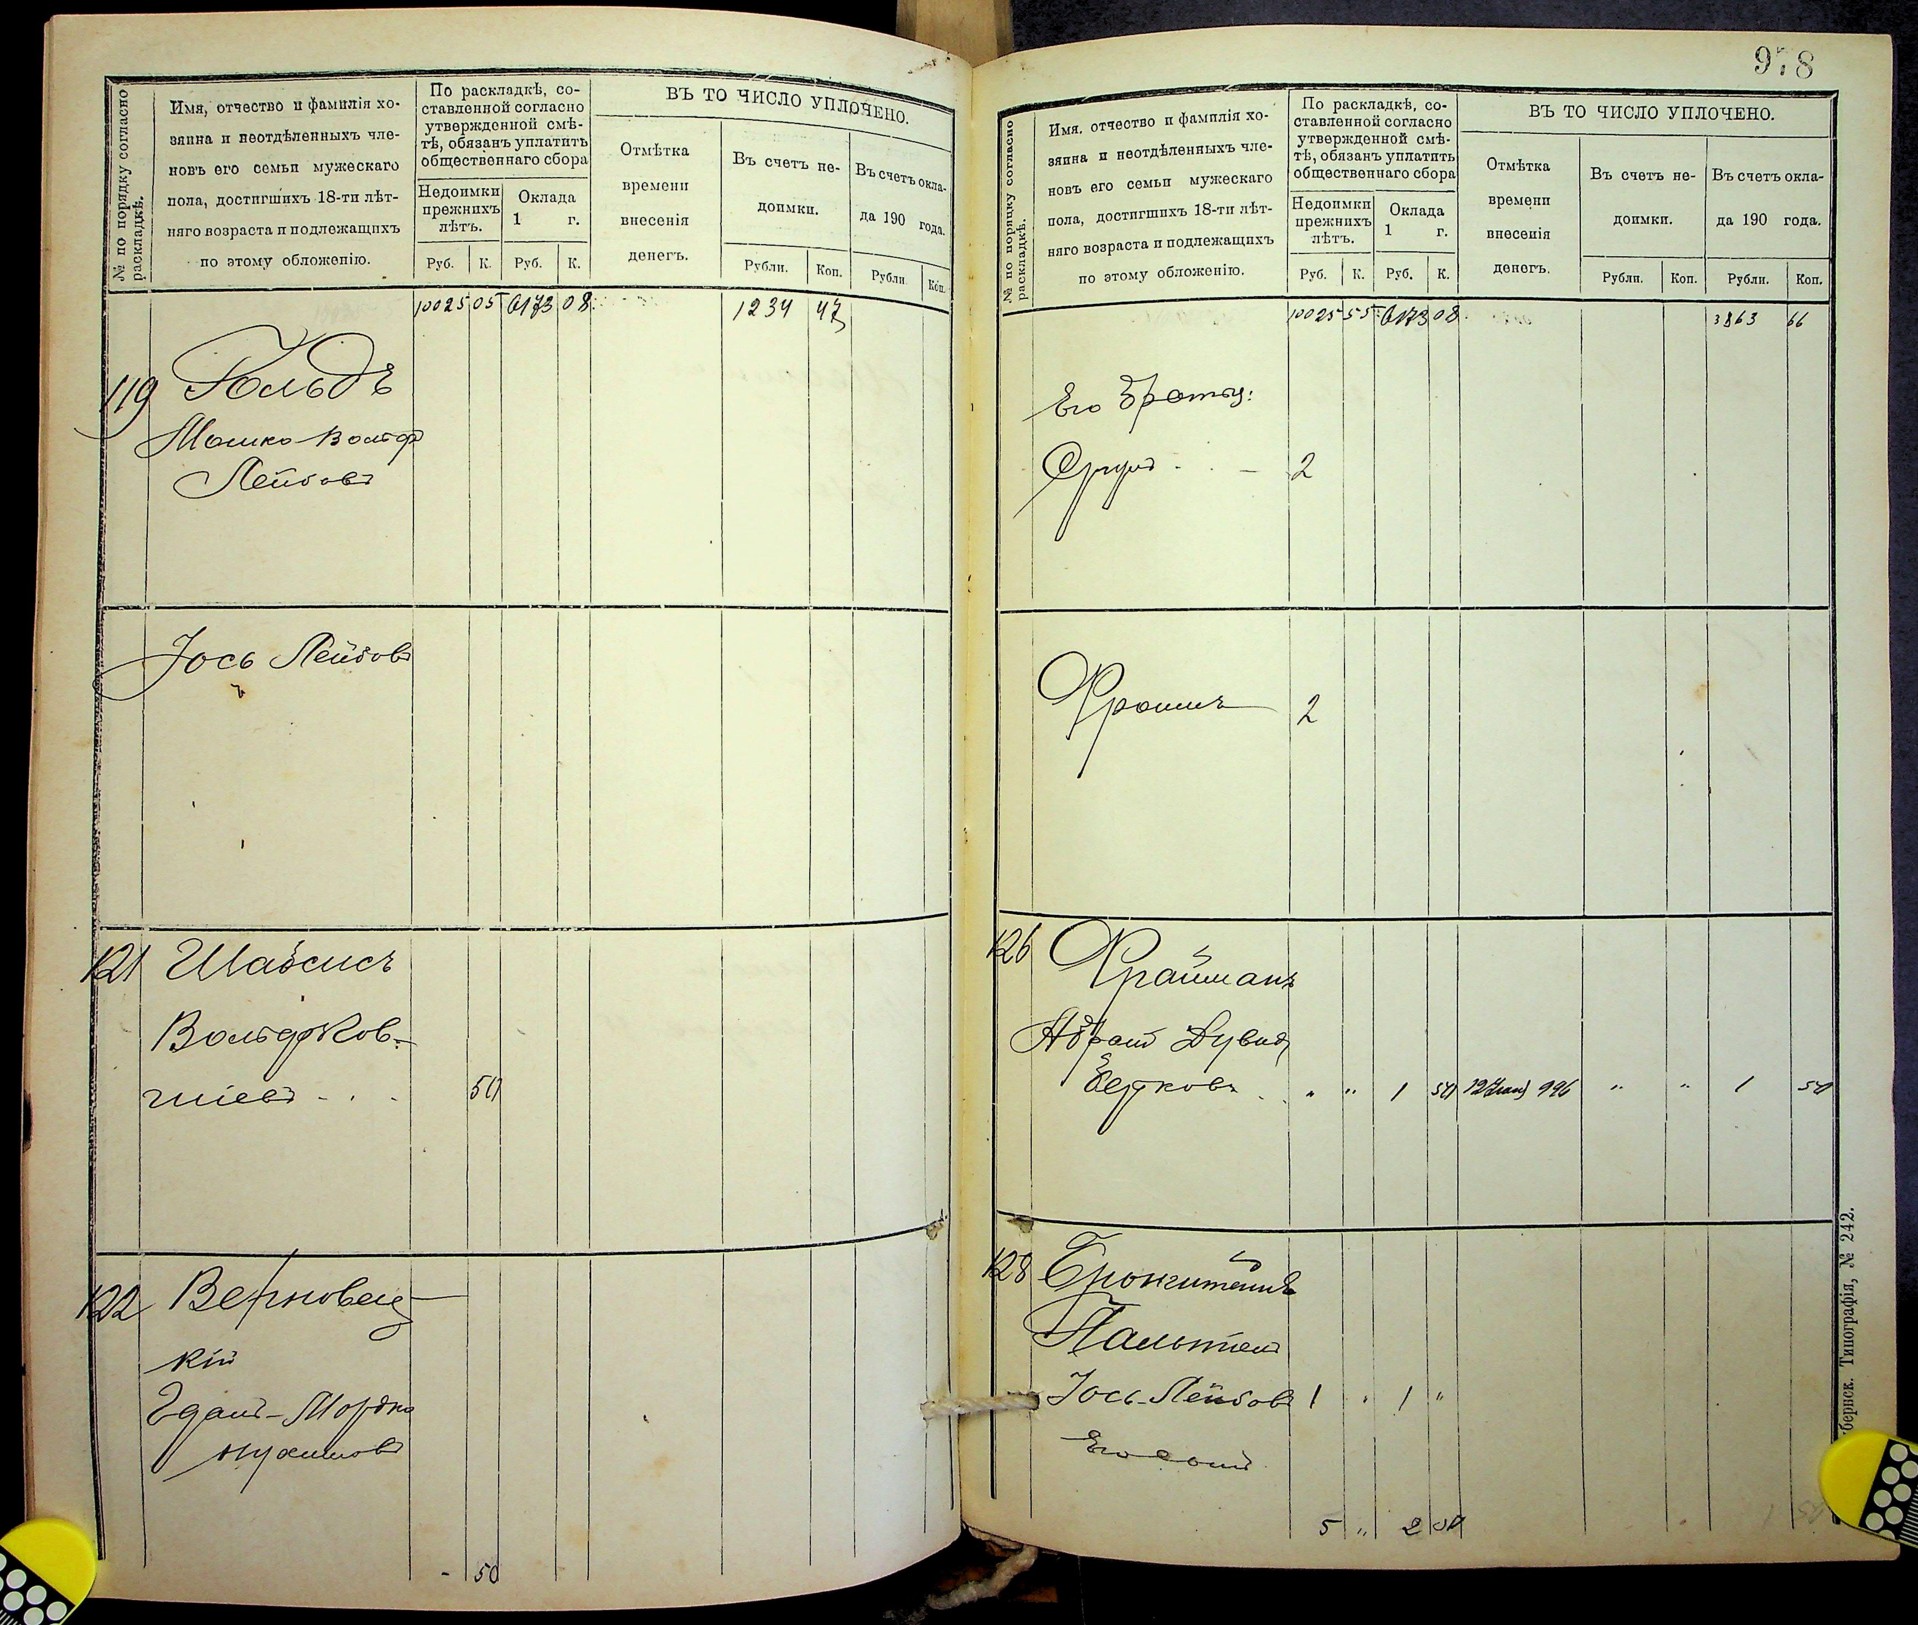 № по порядку согласно
раскладкѣ.
Имя, отчество и фамилія хо-
зяина и неотдѣленныхъ чле-
новъ его семьи мужескаго
пола, достигшихъ 18-ти лѣт-
няго возраста и подлежащихъ
по этому обложенію.
По раскладкѣ, со-
ставленной согласно
утвержденной смѣ-
тѣ, обязанъ уплатить
общественнаго сбора
Недоимки
прежнихъ
лѣтъ.
Оклада
1 г.
Руб. К. Руб. К.
ВЪ ТО ЧИСЛО УПЛОЧЕНО.
Отмѣтка
времени
внесенія
денегъ.
Въ счетъ не-
доимки.
Рубли. Коп.
Въ счетъ окла-
да 190 года.
Рубли Коп.
10025 05 6173 08 1234 47
119 Гольдъ
Мошко Вольф
Лейбовъ
Іось Лейбовъ
121 Шабсисъ
Вольф Ков-
50
122 Верновец
кій
50
978
№ по порядку согласно
раскладкѣ.
Имя, отчество и фамилія хо-
зяина и неотдѣленныхъ чле-
новъ его семьи мужескаго
пола, достигшихъ 18-ти лѣт-
няго возраста и подлежащихъ
по этому обложенію.
По раскладкѣ, со-
ставленной согласно
утвержденной смѣ-
тѣ, обязанъ уплатить
общественнаго сбора
Недоимки
прежнихъ
лѣтъ.
Оклада
1 г.
Руб. К. Руб. К.
ВЪ ТО ЧИСЛО УПЛОЧЕНО.
Отмѣтка
времени
внесенія
денегъ.
Въ счетъ не-
доимки.
Рубли. Коп.
Въ счетъ окла-
да 190 года.
Рубли. Коп.
10025 55 6173 08 3863 66
Его братья:
Сруль 2
Фроимъ 2
126 Фрайманъ
Абрам Дувид
Берков " " 1 50 " " 1 50
128 Бронштейнъ
Пальтіель
Іось-Лейбовъ 1 " 1 "
5 " 2 50 1 50
бернск. Типографія, № 242.